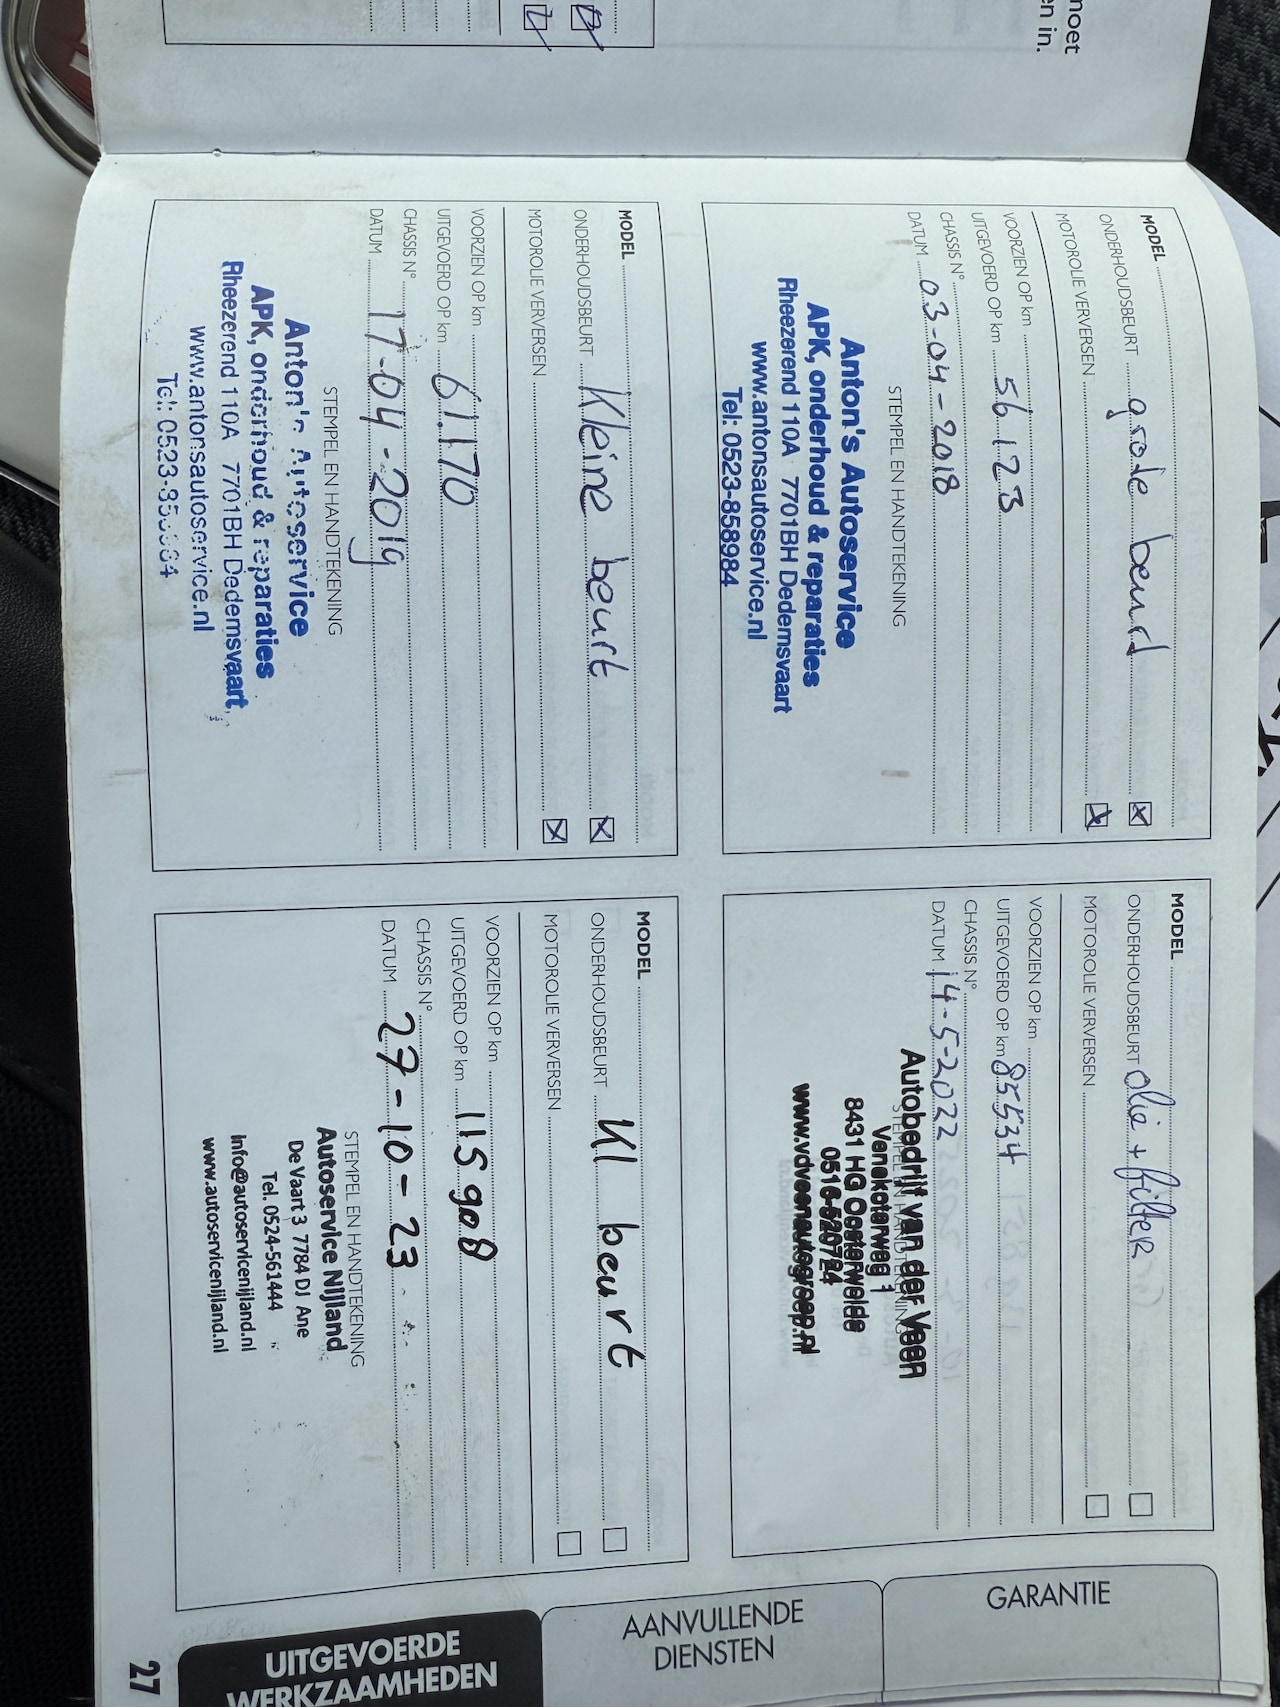 noet
en in.
MODEL
ONDERHOUDSBEURT grote beurd
MOTOROLIE VERVERSEN
VOORZIEN OP km
UITGEVOERD OP km 56.123
CHASSIS N°
DATUM 03-04-2018
STEMPEL EN HANDTEKENING
Anton's Autoservice
APK, onderhoud & reparaties
Rheezerend 110A 7701BH Dedemsvaart
www.antonsautoservice.nl
Tel: 0523-858984
MODEL
ONDERHOUDSBEURT olie + filter
MOTOROLIE VERVERSEN
VOORZIEN OP km
UITGEVOERD OP km 85534
CHASSIS N°
DATUM 14-5-2022
STEMPEL EN HANDTEKENING
Autobedrijf van der Veen
Venekoterweg 1
8431 HG Oosterwolde
0516-520724
www.vdveenautogroep.nl
MODEL
ONDERHOUDSBEURT Kleine beurt
MOTOROLIE VERVERSEN
VOORZIEN OP km
UITGEVOERD OP km 61.170
CHASSIS N°
DATUM 17-04-2019
STEMPEL EN HANDTEKENING
Anton's Autoservice
APK, onderhoud & reparaties
Rheezerend 110A 7701BH Dedemsvaart
www.antonsautoservice.nl
Tel: 0523-858984
MODEL
ONDERHOUDSBEURT Kl beurt
MOTOROLIE VERVERSEN
VOORZIEN OP km
UITGEVOERD OP km 115908
CHASSIS N°
DATUM 27-10-23
STEMPEL EN HANDTEKENING
Autoservice Nijland
De Vaart 3 7784 DJ Ane
Tel. 0524-561444
info@autoservicenijland.nl
www.autoservicenijland.nl
GARANTIE
AANVULLENDE
DIENSTEN
UITGEVOERDE
WERKZAAMHEDEN
27